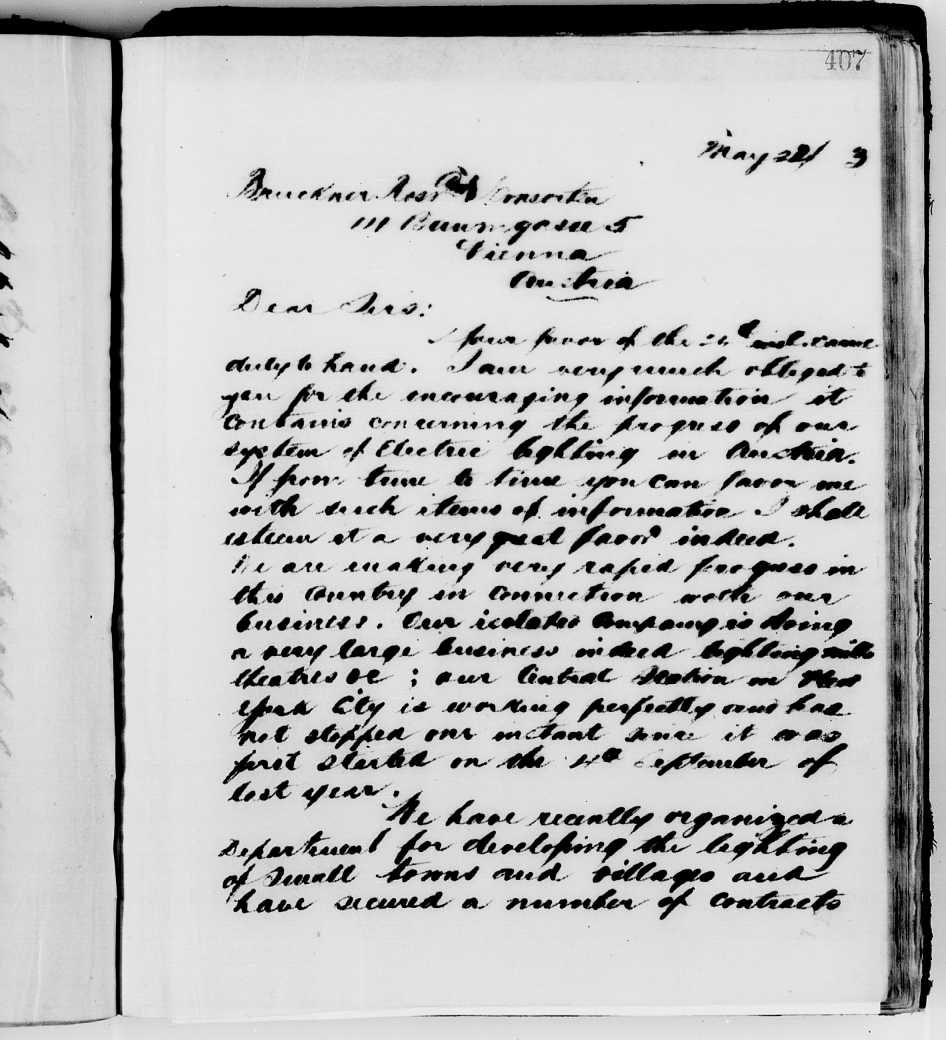 407
May 3
Bruckner Ross Consorten
III Baumgasse 5
Vienna
Austria
Dear Sirs:
Your favor of the inst. came
duly to hand. I am very much obliged to
you for the encouraging information it
contains concerning the progress of our
system of Electric lighting in Austria.
If from time to time you can favor me
with such items of information I shall
esteem it a very great favor indeed.
We are making very rapid progress in
this country in connection with our
business. Our isolated Company is doing
a very large business indeed lighting mills
theatres &c ; our Central Station in New
York City is working perfectly and has
not stopped one instant since it was
first started on the 4th September of
last year.
We have recently organized a
Department for developing the lighting
of Small towns and villages and
have secured a number of contracts